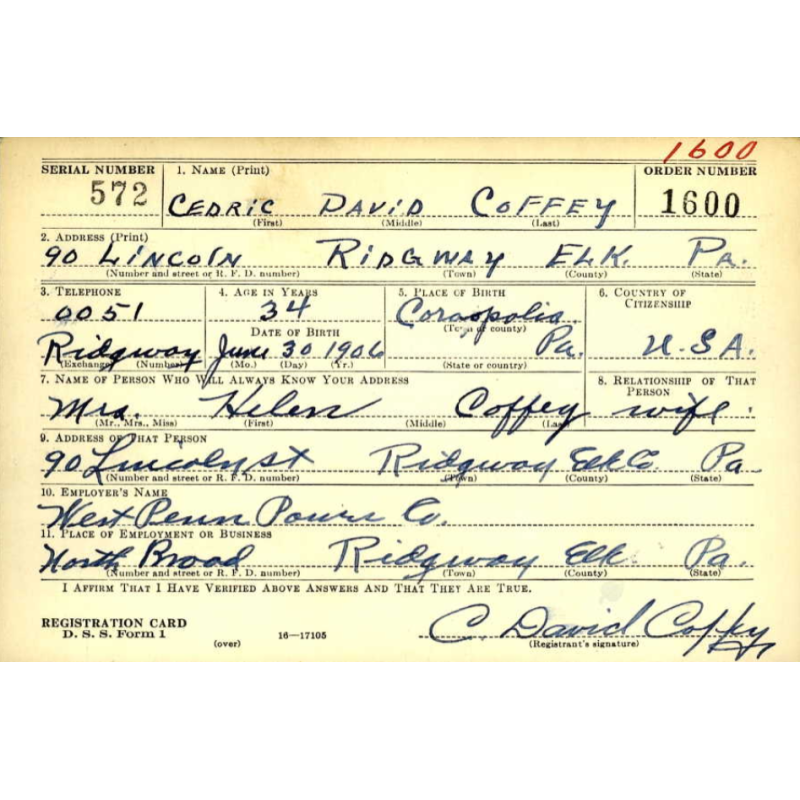 1600
SERIAL NUMBER 1. NAME (Print) ORDER NUMBER
572 CEDRIC DAVID COFFEY 1600
(First) (Middle) (Last)
2. ADDRESS (Print)
90 LINCOLN RIDGWAY ELK. PA.
(Number and street or R. F. D. number) (Town) (County) (State)
3. TELEPHONE 4. AGE IN YEARS 5. PLACE OF BIRTH 6. COUNTRY OF CITIZENSHIP
0051 34 Coraopolis
(Town or county)
DATE OF BIRTH
Ridgway June 30 1906 Pa. U.S.A.
(Exchange) (Number) (Mo.) (Day) (Yr.) (State or country)
7. NAME OF PERSON WHO WILL ALWAYS KNOW YOUR ADDRESS 8. RELATIONSHIP OF THAT PERSON
Mrs. Helen Coffey wife.
(Mr., Mrs., Miss) (First) (Middle) (Last)
9. ADDRESS OF THAT PERSON
90 Lincoln st Ridgway Elk Co. Pa
(Number and street or R. F. D. number) (Town) (County) (State)
10. EMPLOYER'S NAME
West Penn Power Co.
11. PLACE OF EMPLOYMENT OR BUSINESS
North Broad Ridgway Elk. Pa.
(Number and street or R. F. D. number) (Town) (County) (State)
I AFFIRM THAT I HAVE VERIFIED ABOVE ANSWERS AND THAT THEY ARE TRUE.
REGISTRATION CARD
D. S. S. Form 1 (over) 16—17105 C. David Coffey
(Registrant's signature)